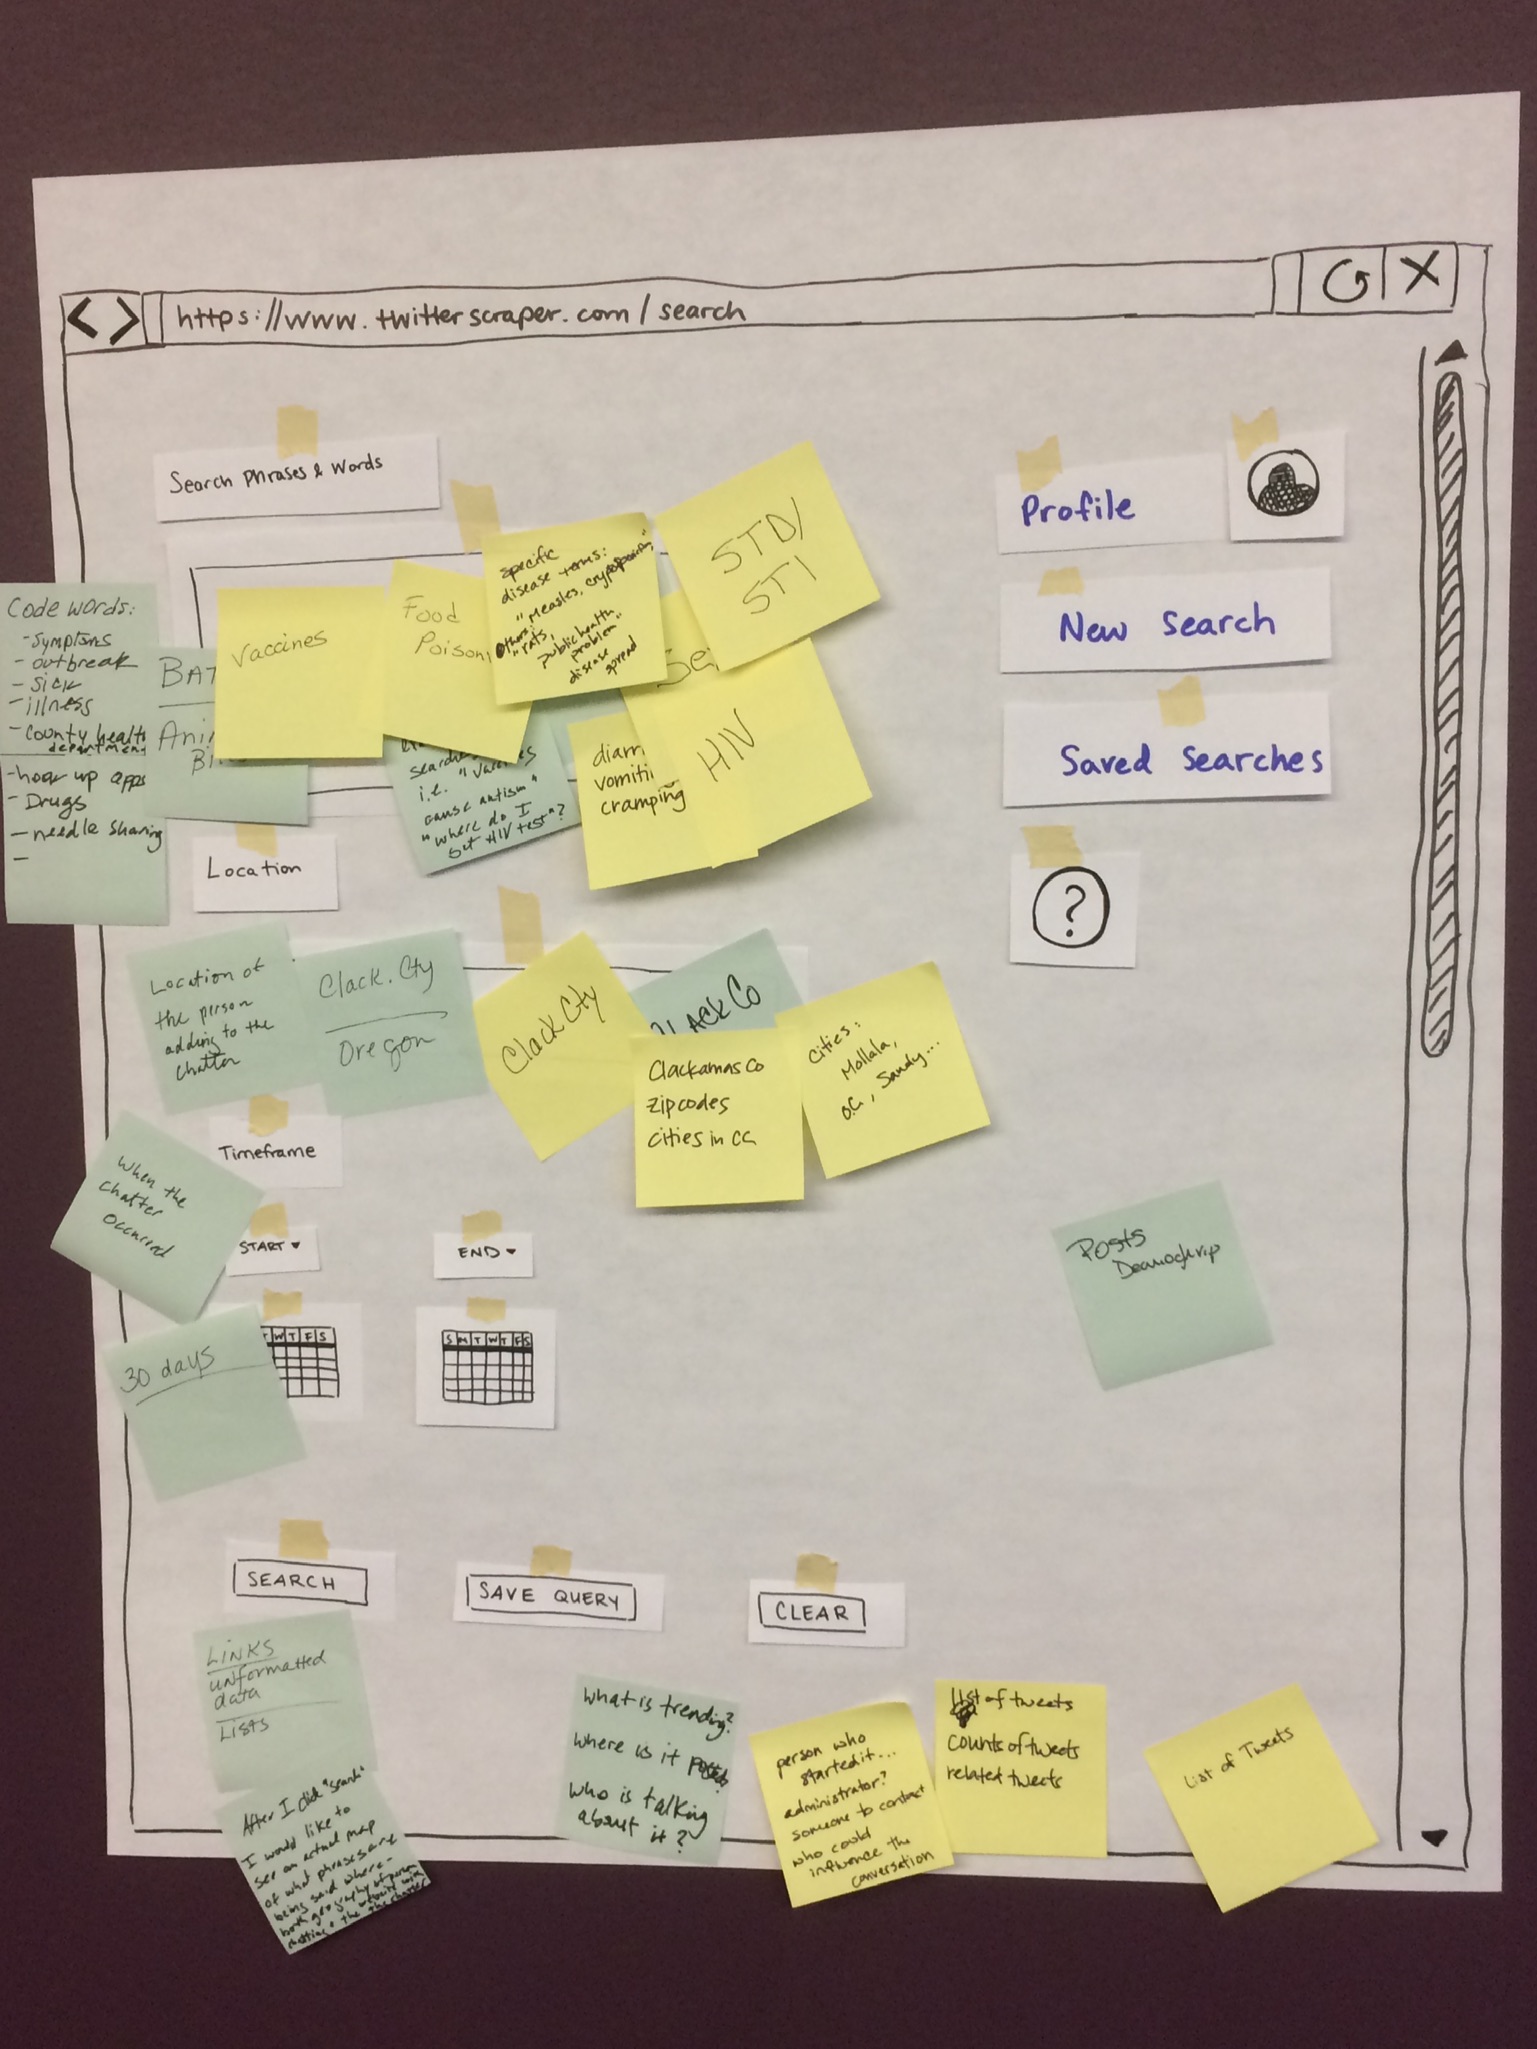 < >
https://www.twitterscraper.com/search
X
Search Phrases & Words
Profile
New Search
Saved Searches
?
Code words:
- symptoms
- outbreak
- sick
- illness
- county health
department
- hook up apps
- Drugs
- needle sharing
-
BAT
Ani
Bi
Vaccines
Food
Poison
specific
disease terms:
"Measles,
others:
"rats,
public health
problem"
disease
spread
STD/
STI
HIV
i.e. "vaccines
cause autism"
"where do I
get HIV test"?
diarr
vomiti
cramping
Location
Location of
the person
adding to the
chatter
Clack. Cty
Oregon
Clack Cty
LACK Co
Clackamas Co
zipcodes
cities in CC
Cities:
Mollala,
O.C., Sandy...
Timeframe
When the
chatter
occurred
START
END
30 days
T W T F S
S M T W T F S
Posts
SEARCH
SAVE QUERY
CLEAR
LINKS
unformatted
data
Lists
After I click "search"
I would like to
see an actual map
of what phrases are
being said where -
both geography of person
What is trending?
Where is it
who is talking
about it?
person who
started it...
administrator?
someone to contact
who could
influence the
conversation
list of tweets
counts of tweets
related tweets
List of Tweets